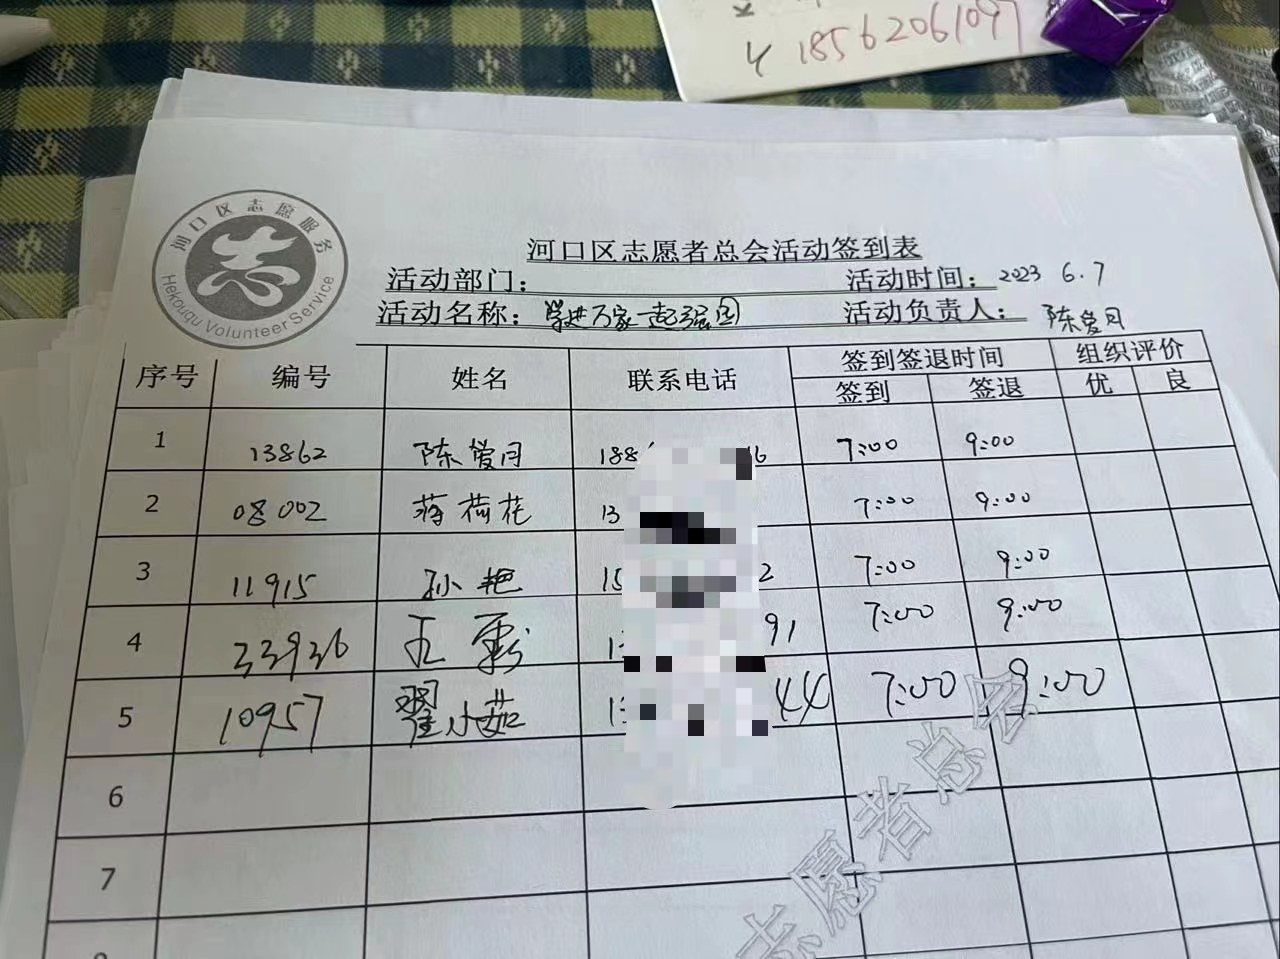 18562061097
河口区志愿服务
Hekouqu Volunteer Service
河口区志愿者总会活动签到表
活动部门: 活动时间: 2023 6.7
活动名称: 学进万家一起强国 活动负责人: 陈爱月
序号 编号 姓名 联系电话 签到签退时间 组织评价
签到 签退 优 良
1 13862 陈爱月 188 16 7:00 9:00
2 08002 蒋荷花 13 7:00 9:00
3 11915 孙艳 15 2 7:00 9:00
4 33936 王彩 1 91 7:00 9:00
5 10957 翟小茹 13 44 7:00 9:00
6
7
志愿者总会